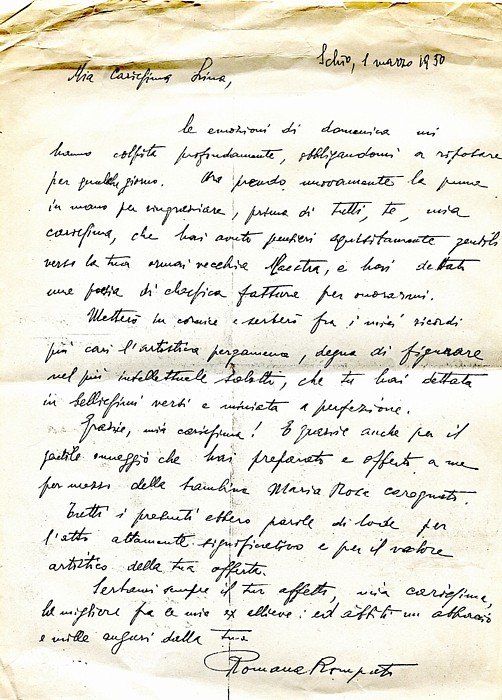 Schio, 1 marzo 1950
Mia carissima Irma,
le emozioni di domenica mi
hanno colpita profondamente, obbligandomi a riposare
per qualche giorno. Ora prendo nuovamente la penna
in mano per ringraziare, prima di tutti, te, mia
carissima, che hai avuto pensieri squisitamente gentili
verso la tua ormai vecchia Maestra, e hai dettato
una poesia di classica fattura per onorarmi.
Metterò in cornice e serberò fra i miei ricordi
più cari l'artistica pergamena, degna di figurare
nel più intellettuale salotto, che tu hai dettata
in bellissimi versi e miniata a perfezione.
Grazie, mia carissima! E grazie anche per il
gentile omaggio che hai preparato e offerto a me
per mezzo della bambina Maria Rosa
Tutti i presenti ebbero parole di lode per
l'atto altamente significativo e per il valore
artistico della tua offerta.
Serbami sempre il tuo affetto, mia carissima,
la migliore fra le mie ex allieve: ed abbiti un abbraccio
e mille auguri dalla tua
Romana